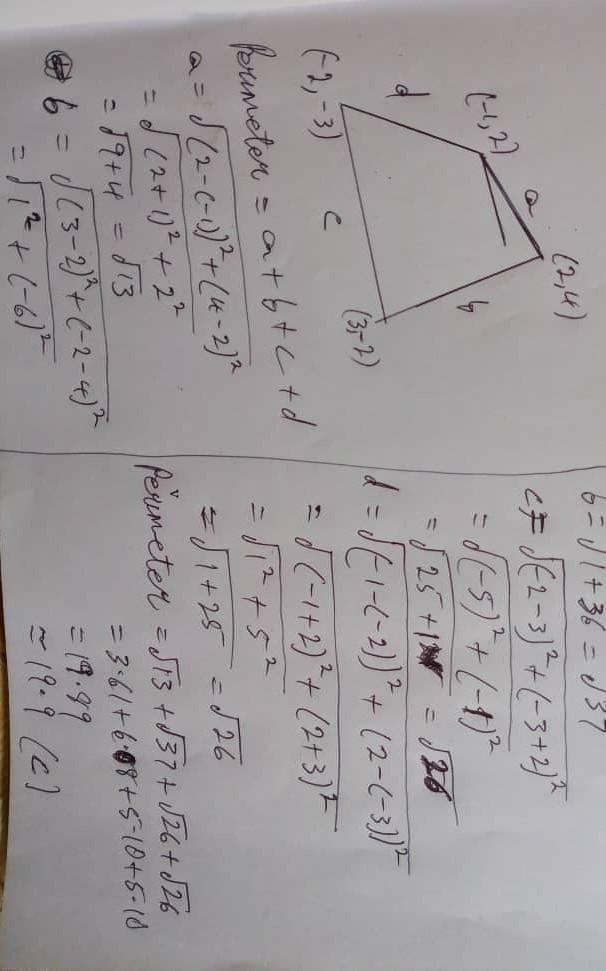 (-1,2)
a
(2,4)
d
b
(-2,-3)
c
(3,-2)
Perimeter = a + b + c + d
a = √(2-(-1))² + (4-2)²
= √(2+1)² + 2²
= √9+4 = √13
b = √(3-2)² + (-2-4)²
= √1² + (-6)²
b = √1+36 = √37
c = √(-2-3)² + (-3+2)²
= √(-5)² + (-1)²
= √25+1 = √26
d = √(-1-(-2))² + (2-(-3))²
= √(-1+2)² + (2+3)²
= √1² + 5²
= √1+25 = √26
Perimeter = √13 + √37 + √26 + √26
= 3.61 + 6.08 + 5.10 + 5.10
= 19.89
≈ 19.9 (c)